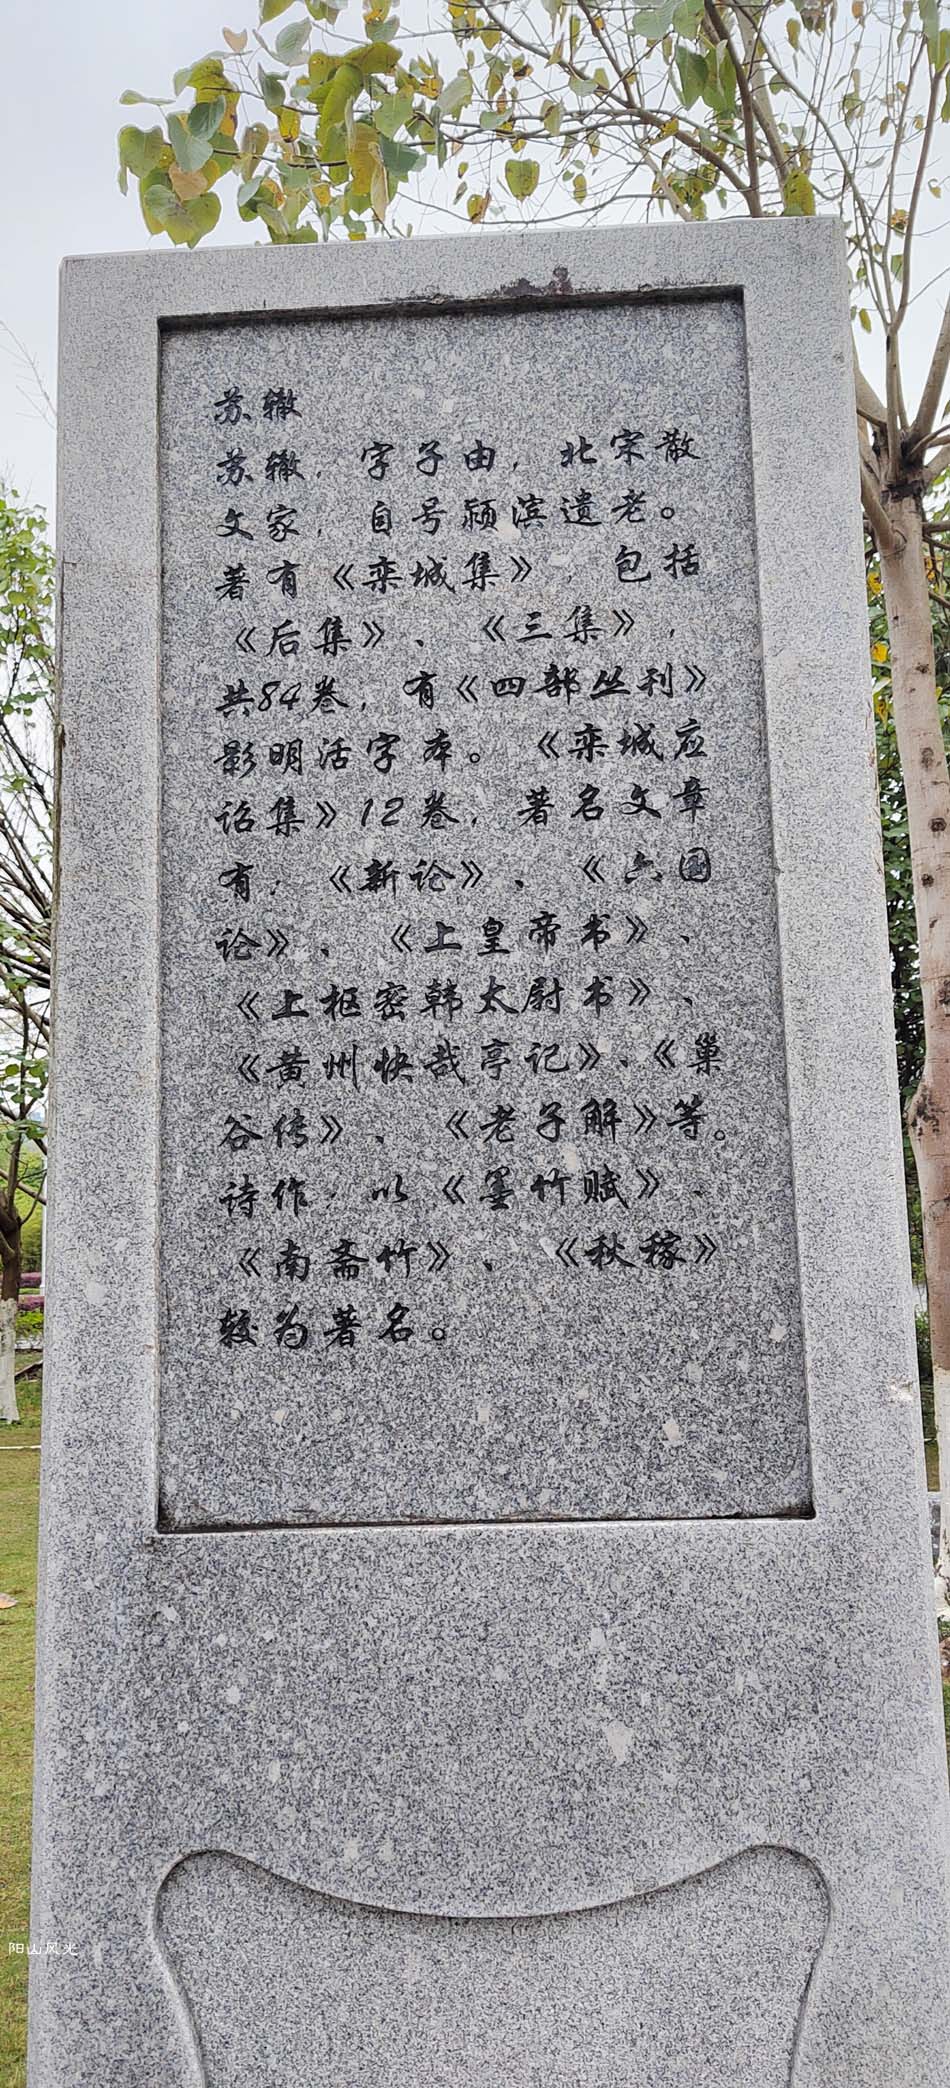 苏辙
苏辙，字子由，北宋散
文家，自号颍滨遗老。
著有《栾城集》，包括
《后集》、《三集》，
共84卷，有《四部丛刊》
影明活字本。《栾城应
诏集》12卷，著名文章
有：《新论》、《六国
论》、《上皇帝书》、
《上枢密韩太尉书》、
《黄州快哉亭记》、《巢
谷传》、《老子解》等。
诗作：以《墨竹赋》、
《南斋竹》、《秋稼》
较为著名。
阳山风光